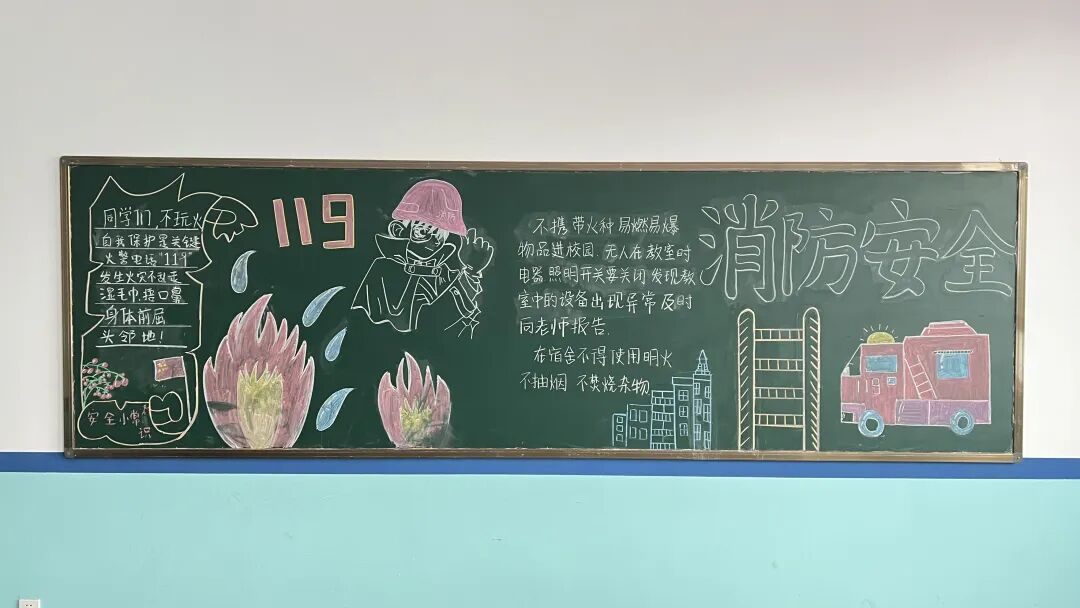 同学们,不玩火
自我保护是关键
火警电话"119"
发生火灾不乱走
湿毛巾捂口鼻
身体前屈
头邻地!
安全小常识
119
消防
不携带火种 易燃易爆
物品进校园. 无人在教室时
电器 照明开关要关闭 发现教
室中的设备出现异常及时
向老师报告.
在宿舍不得使用明火
不抽烟 不焚烧杂物
消防安全
119